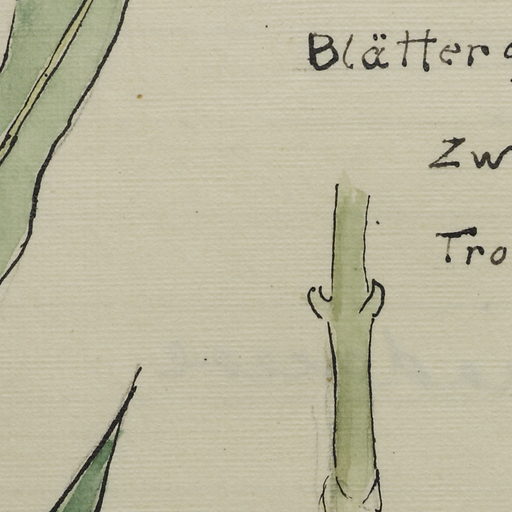 Blätter
Zw
Tro